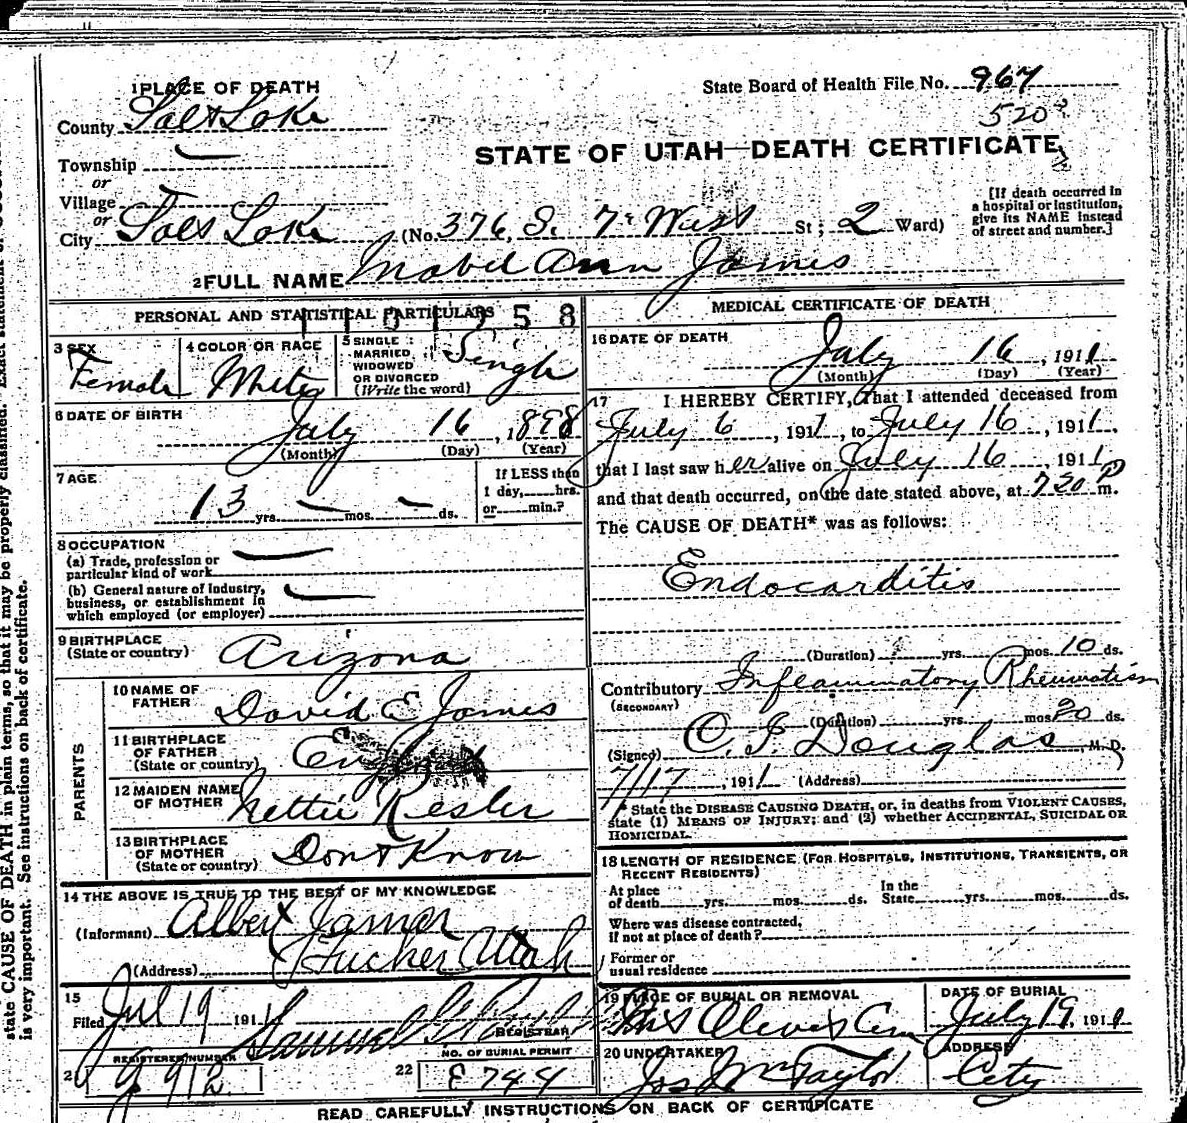 1 PLACE OF DEATH
State Board of Health File No. 967
County Salt Lake
520
Township
STATE OF UTAH—DEATH CERTIFICATE
or
Village
or
City Salt Lake (No. 376, S. 7 West St; 2 Ward)
[If death occurred in
a hospital or institution,
give its NAME instead
of street and number.]
2 FULL NAME Mabel Ann James
PERSONAL AND STATISTICAL PARTICULARS
1101258
3 SEX
Female
4 COLOR OR RACE
White
5 SINGLE
MARRIED,
WIDOWED
OR DIVORCED
(Write the word)
Single
6 DATE OF BIRTH
July 16, 1898
(Month) (Day) (Year)
7 AGE
13 yrs. mos. ds.
If LESS than
1 day, hrs.
or min.?
8 OCCUPATION
(a) Trade, profession or
particular kind of work
(b) General nature of Industry,
business, or establishment in
which employed (or employer)
9 BIRTHPLACE
(State or country) Arizona
PARENTS
10 NAME OF
FATHER David E James
11 BIRTHPLACE
OF FATHER
(State or country)
12 MAIDEN NAME
OF MOTHER Nettie Resler
13 BIRTHPLACE
OF MOTHER
(State or country) Don't Know
14 THE ABOVE IS TRUE TO THE BEST OF MY KNOWLEDGE
(Informant) Albert James
(Address) Tucker Utah
15
Filed Jul 19 1911 Samuel G Paul
REGISTRAR
REGISTERED NUMBER
21 912
22
NO. OF BURIAL PERMIT
E 744
MEDICAL CERTIFICATE OF DEATH
16 DATE OF DEATH
July 16, 1911
(Month) (Day) (Year)
17 I HEREBY CERTIFY, That I attended deceased from
July 6, 1911, to July 16, 1911,
that I last saw her alive on July 16, 1911,
and that death occurred, on the date stated above, at 720 P m.
The CAUSE OF DEATH* was as follows:
Endocarditis
(Duration) yrs. mos. 10 ds.
Contributory Inflammatory Rheumatism
(SECONDARY)
(Duration) yrs. mos. 20 ds.
(Signed) O. J. Douglas, M. D.
7/17, 1911 (Address)
* State the DISEASE CAUSING DEATH, or, in deaths from VIOLENT CAUSES,
state (1) MEANS OF INJURY; and (2) whether ACCIDENTAL, SUICIDAL OR
HOMICIDAL.
18 LENGTH OF RESIDENCE (FOR HOSPITALS, INSTITUTIONS, TRANSIENTS, OR
RECENT RESIDENTS)
At place
of death yrs. mos. ds.
In the
State yrs. mos. ds.
Where was disease contracted,
if not at place of death?
Former or
usual residence
19 PLACE OF BURIAL OR REMOVAL
Mt Olivet Cem
DATE OF BURIAL
July 19, 1911
20 UNDERTAKER
Jos Wm Taylor
ADDRESS
City
READ CAREFULLY INSTRUCTIONS ON BACK OF CERTIFICATE
state CAUSE OF DEATH in plain terms, so that it may be properly classified. Exact statement of
is very important. See instructions on back of certificate.